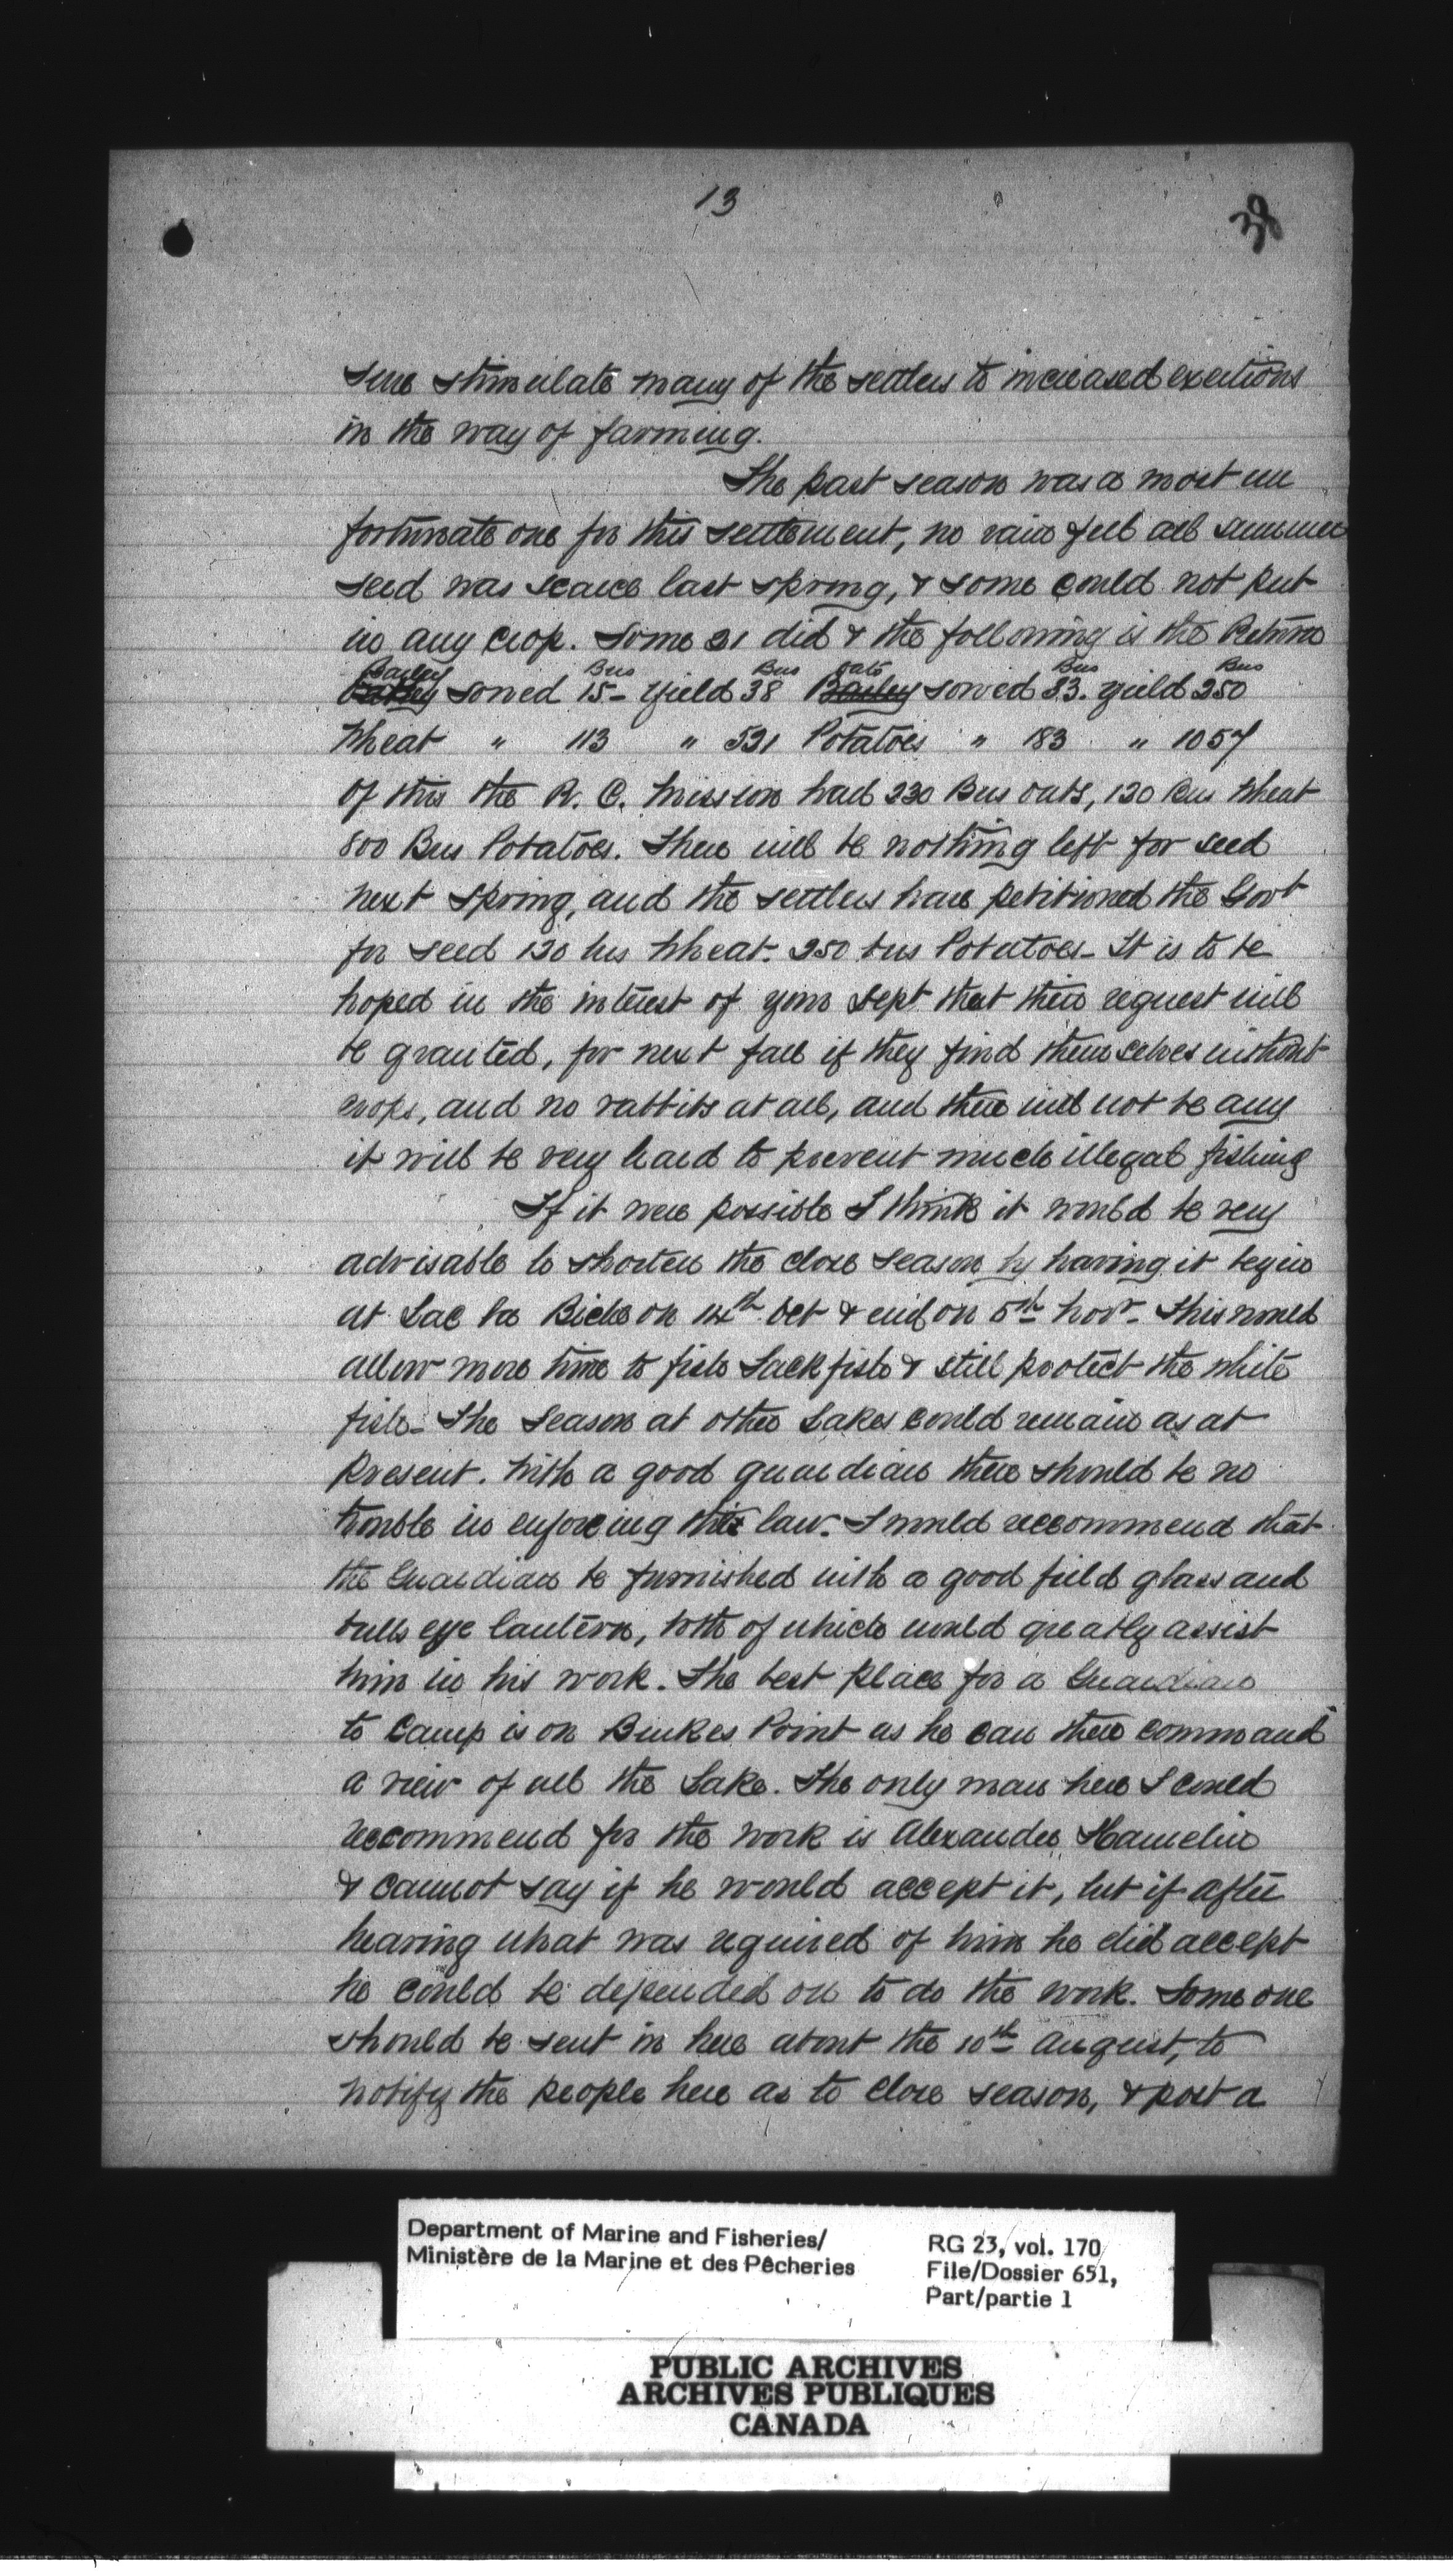 13
38
sure stimulate many of the settlers to increased exertions
in the way of farming.
The past season was a most un
fortunate one for this settlement, no rain fell all summer
seed was scarce last spring, & some could not put
in any crop. Some 21 did & the following is the Return
Barley Bus Bus oats Bus Bus
sowed 15 - yield 38 Barley sowed 33. yield 250
Wheat " 113 " 531 Potatoes " 183 " 1057
Of this the R. C. Mission had 230 Bus oats, 120 Bus Wheat
800 Bus Potatoes. There will be nothing left for seed
next spring, and the settlers have petitioned the Govt
for seed 120 bus Wheat. 250 bus Potatoes - It is to be
hoped in the interest of your Dept that their request will
be granted, for next fall if they find themselves without
crops, and no rabbits at all, and there will not be any
it will be very hard to prevent much illegal fishing
If it were possible I think it would be very
advisable to shorten the close season by having it begin
at Lac La Biche on 14th Oct & end on 5th Nov - This would
allow more time to fish Jackfish & still protect the white
fish - The Season at other Lakes could remain as at
present. With a good guardian there should be no
trouble in enforcing the law. I would recommend that
the Guardian be furnished with a good field glass and
bulls eye lantern, both of which would greatly assist
him in his work. The best place for a Guardian
to camp is on Burkes Point as he can there command
a view of all the Lake. The only man here I could
recommend for the work is Alexander Hamelin
& cannot say if he would accept it, but if after
hearing what was required of him he did accept
he could be depended on to do the work. Some one
should be sent in here about the 10th August, to
notify the people here as to close season, & post a
Department of Marine and Fisheries/
Ministère de la Marine et des Pêcheries
RG 23, vol. 170
File/Dossier 651,
Part/partie 1
PUBLIC ARCHIVES
ARCHIVES PUBLIQUES
CANADA